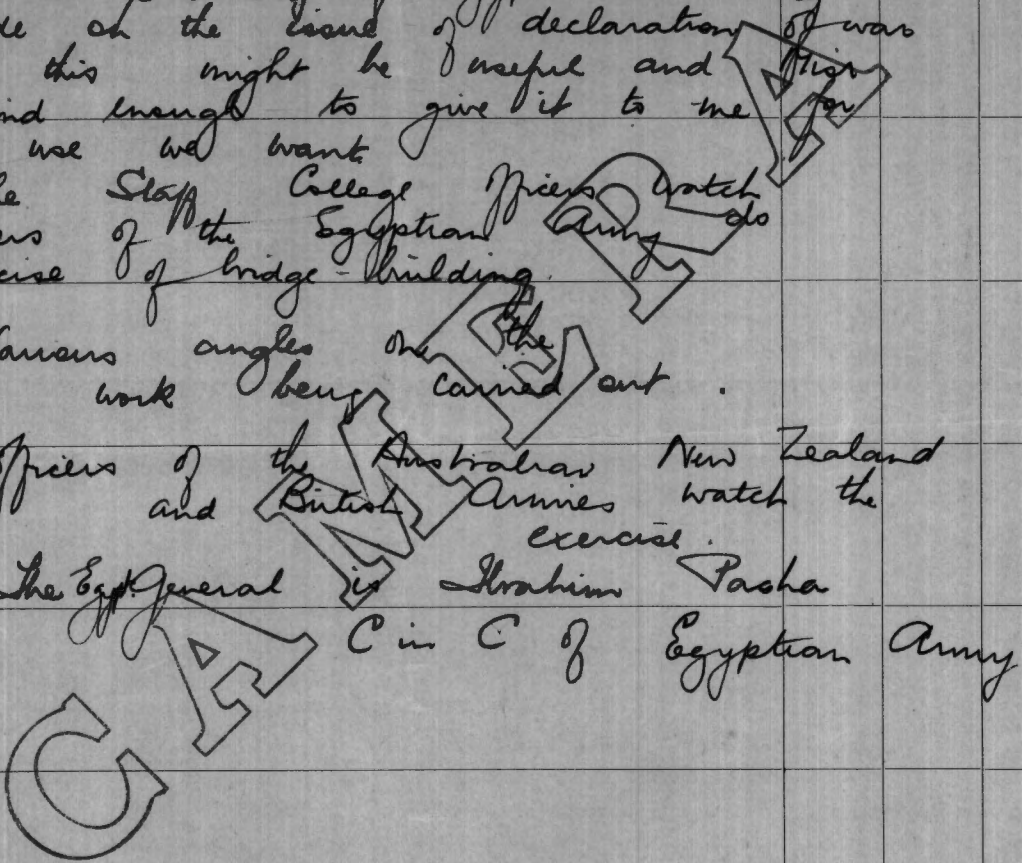 on the issue of declaration of war
this might be useful and
enough to give it to me for
use we want
Staff College Officers watch
of the Egyptian Army do
of bridge-building.
angles on the
work being carried out.
Officers of the Australian New Zealand
and British Armies watch the
exercise.
The Egpt. General is Ibrahim Pasha
C in C of Egyptian Army
CAMERA